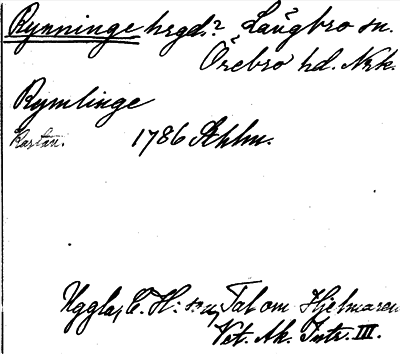 Rynninge hrgd.? Längbro sn.
Örebro hd. Nrk.
Rymlinge
Kartan. 1786 Ahlm.
Uggla, C. H:son, Tal om Hjelmaren
Vet. Ak. Intr. III.